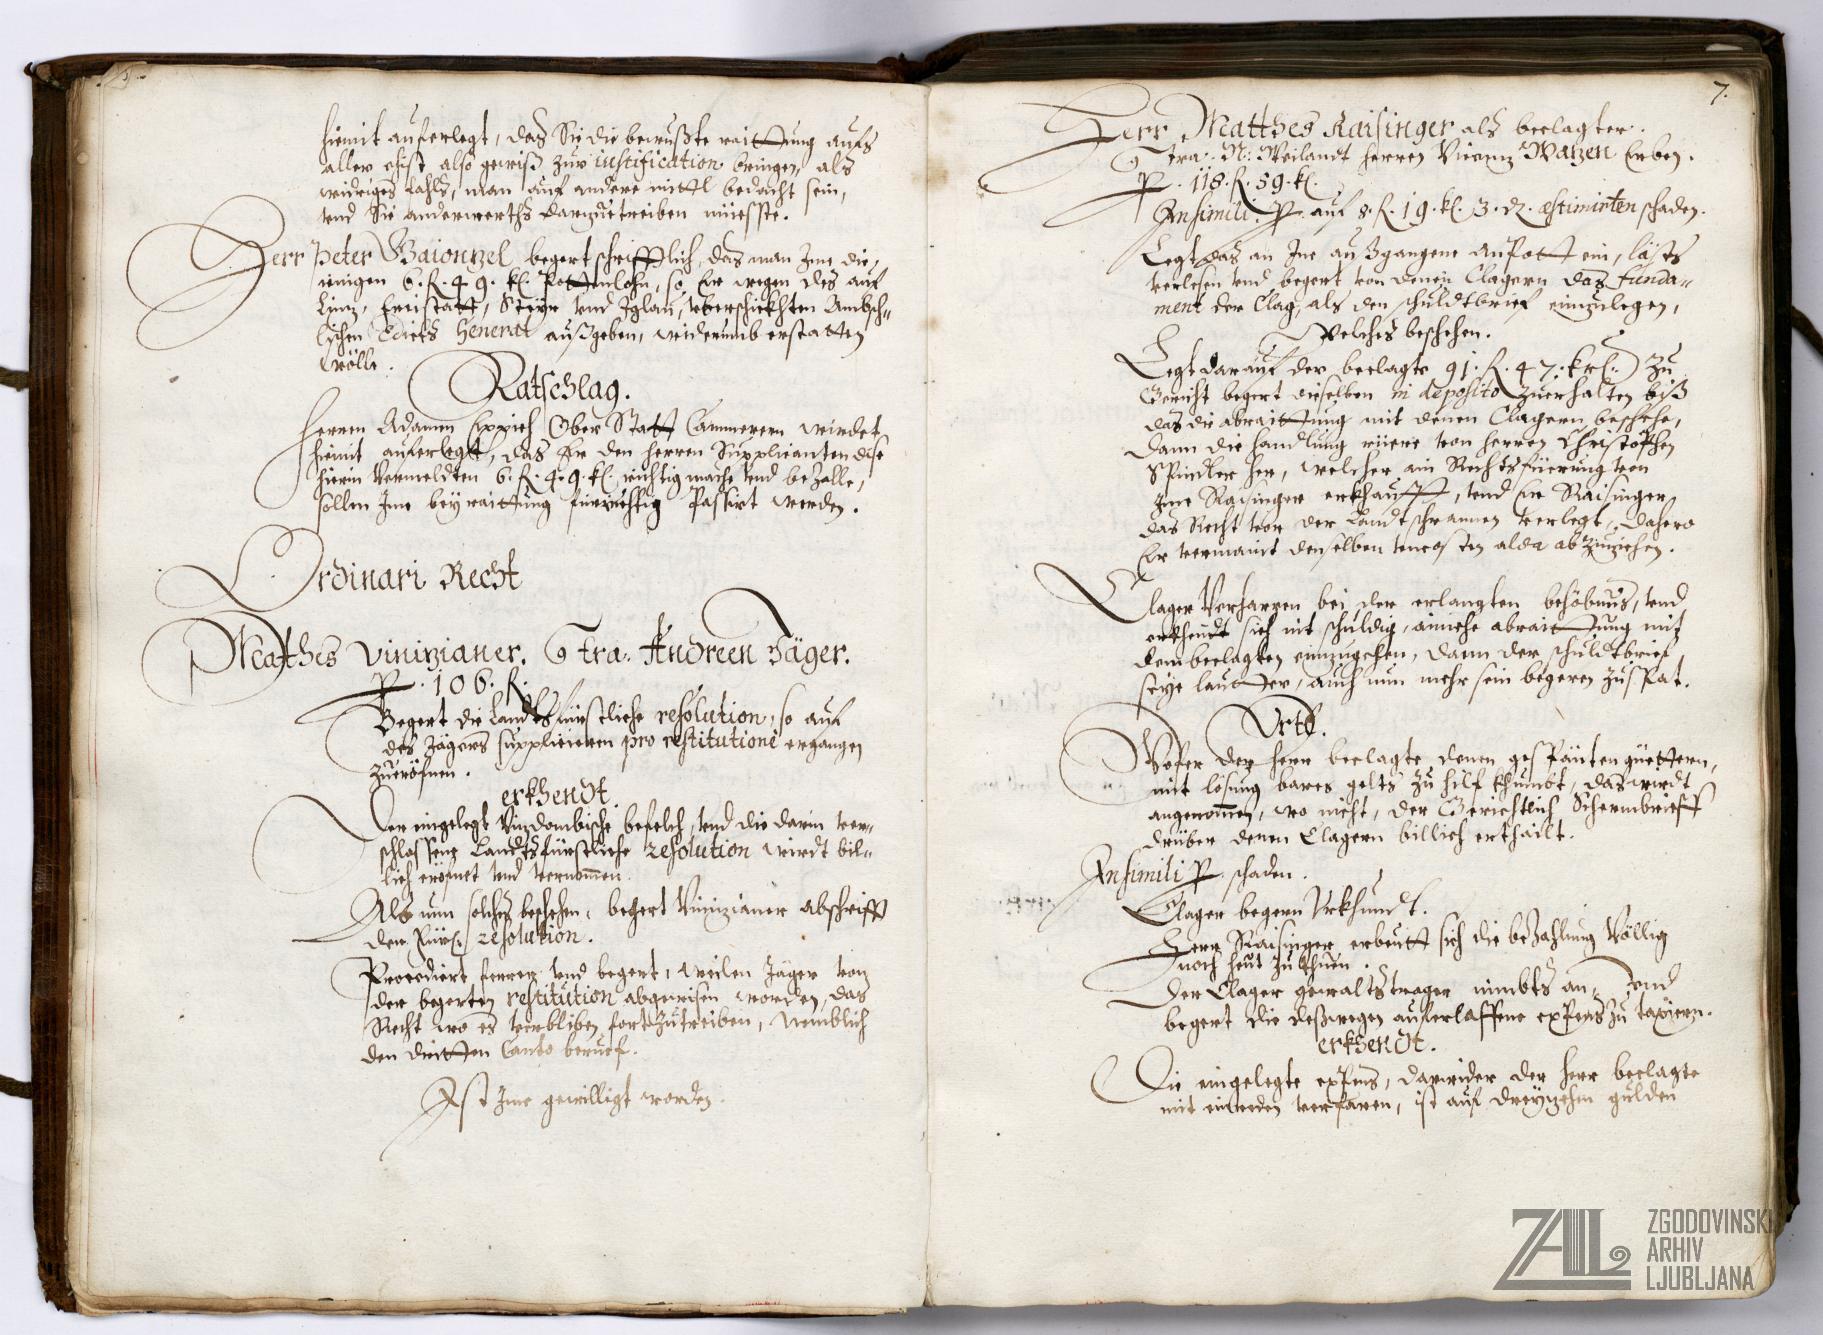 hiemit auferlegt, das Sie die bewußte raittung aufs
aller ehist also gewiß zur iustification bringen, als
widriges fahls, man auf andere mittl bedacht sein,
vnd Sie anderwerths darzue treiben müesste.
Herr Peter Baionzel begert schrifftlich, das man Ime die,
ienigen 6. f. 49. kl. Pottenlohn, so Er wegen des auf
Linz, Freistatt, Steyr vnd Iglau, vberschickhten
Edicts General außgeben, widerumb erstatten
wölle.
Ratschlag.
Herren Adamen Ober Statt Cammerern wirdet
hiemit auferlegt, das Er den herren Supplicanten dise
hierin Vermeldten 6. f. 49. kl. richtig mache vnd bezalle,
sollen Ime bey raittung für richtig Passirt werden.
Ordinari Recht
Mathes Vinizianer. Contra. Andreen Jäger.
P. 106. f.
Begert die Landtsfürstliche resolution, so auf
des Jägers suppliciern pro restitutione ergangen
zueröfnen.
erkhendt.
Der eingelegt Vizdombische befelch, vnd die darin ver-
schlossene Landtsfürstliche resolution wirdt bil-
lich eröfnet vnd vernomen.
Als nun solches beschehen, begert Vinizianer abschrifft
der Fürs: resolution.
Procediert ferrer vnd begert, weilen Jäger von
der begerten restitution abgewisen worden, das
Recht wo es verbliben fortzutreiben, nemblich
den dritten Canto beruef.
Ist Ime gewilligt worden.
7.
Herr Matthes Raisinger als beclagter.
Contra. N: Weilandt herren Vicenz Warzen Erben.
P. 118. f. 59. kl.
In simili P. auf 8. f. 19. kl. 3. dz. æstimirten schaden.
Legt das an Ine außgangene anPott ein, läßts
verlesen vnd begert von denen Clagern das funda-
ment der Clag, als den schuldtbrief einzulegen,
Welches beschehen.
Legt darauf der beclagte 91. f. 47. krl. zu
Gericht begert dieselben in deposito zuerhalten biß
das die abraittung mit denen Clagern beschehe,
dann die handlung rüere von herren Christoffen
Spindler her, welcher ain Rechtsfüerung von
Ime Raisinger erkhaufft, vnd Er Raisinger
das Recht vor der Landtschrannen verlegt, dahero
Er vermaint denselben vncosten alda abzuziehen.
Clager Verharren bei der erlangten behöbnus, vnd
erkhendt sich nit schuldig, ainiche abraittung mit
dem beclagten einzugehen, dann der schuldtbrief
seye lautter, auch nun mehr sein begeren zu spat.
Vrtl.
Wofer der herr beclagte denen gePfänten güettern,
mit lösung bares gelts zu hilf khumbt, das wirdt
angenomen, wo nicht, der Gerichtlich Schermbrieff
drüber denen Clagern billich erthailt.
In simili P. schaden.
Clager begern Vrkhundt.
Herr Raisinger erbeutt sich die bezahlung Völlig
noch heut zuthuen.
Der Clager gewaltstrager nimbts an, vnd
begert die deßwegen aufferlaffene expens zu taxiern.
erkhendt.
Die eingelegte expens, darwider der herr beclagte
mit einreden verfaren, ist auf dreyzehen gulden
ZGODOVINSKI
ARHIV
LJUBLJANA